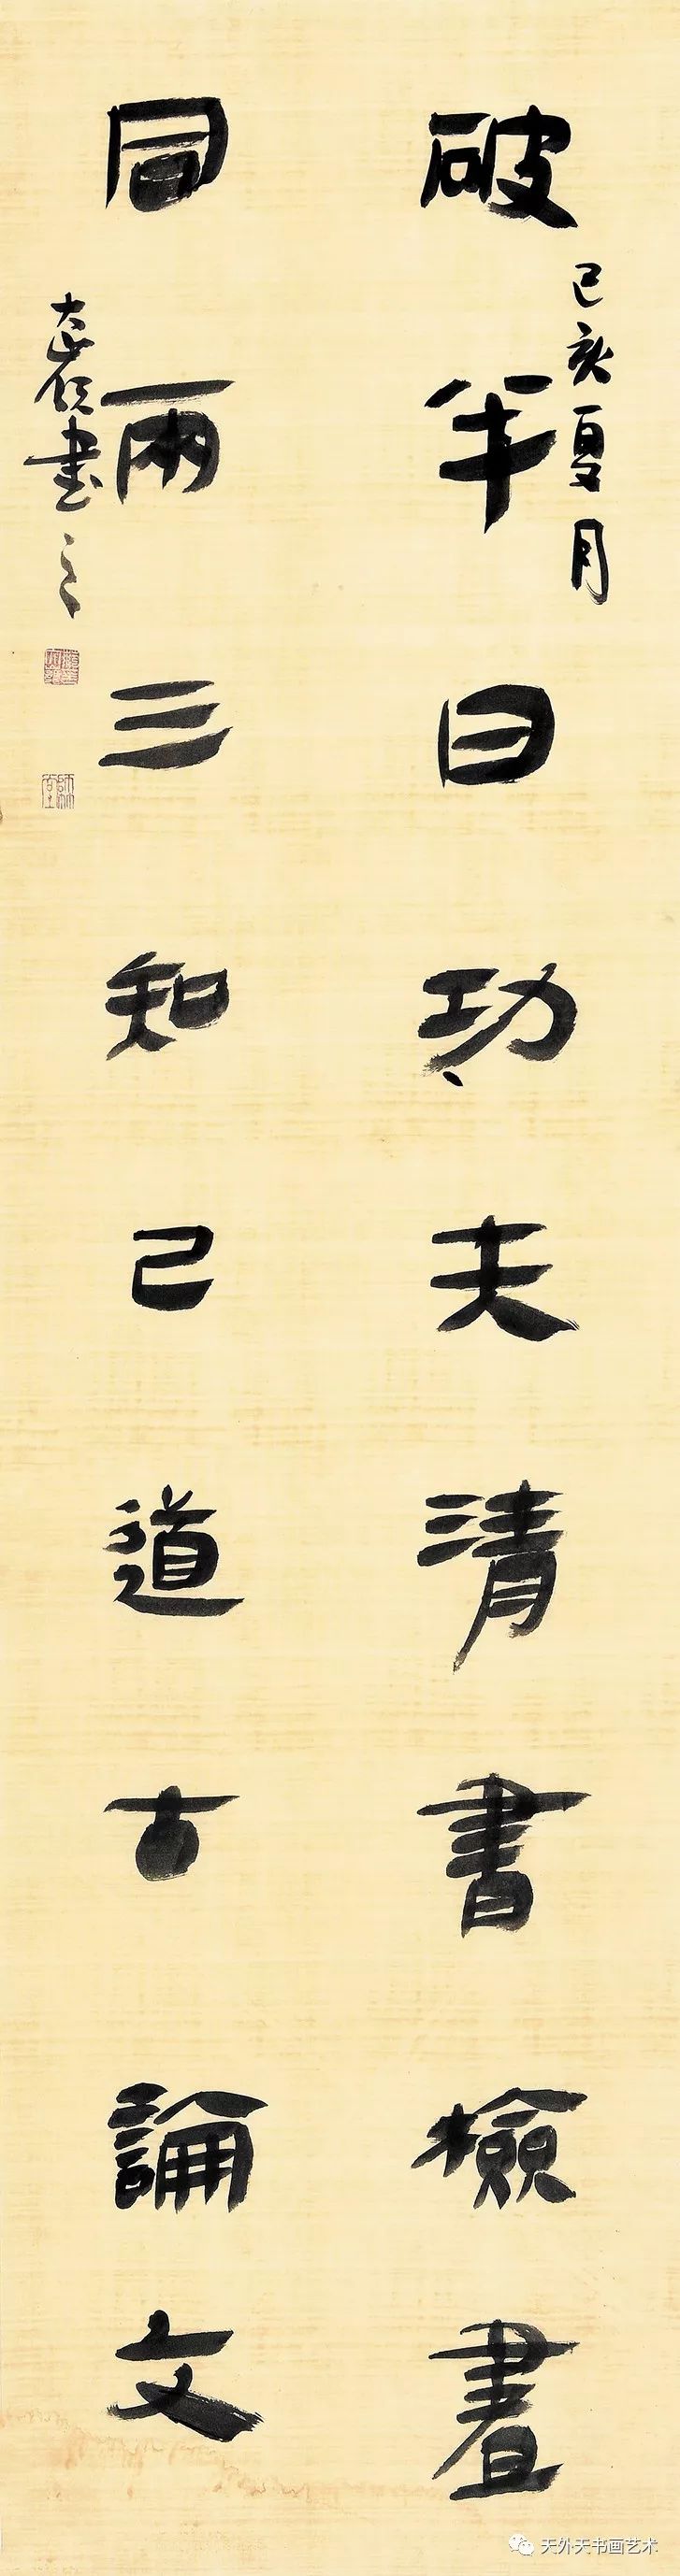 己亥夏月
破半日功夫清書檢畫
同兩三知己道古論文
书之
天外天书画艺术